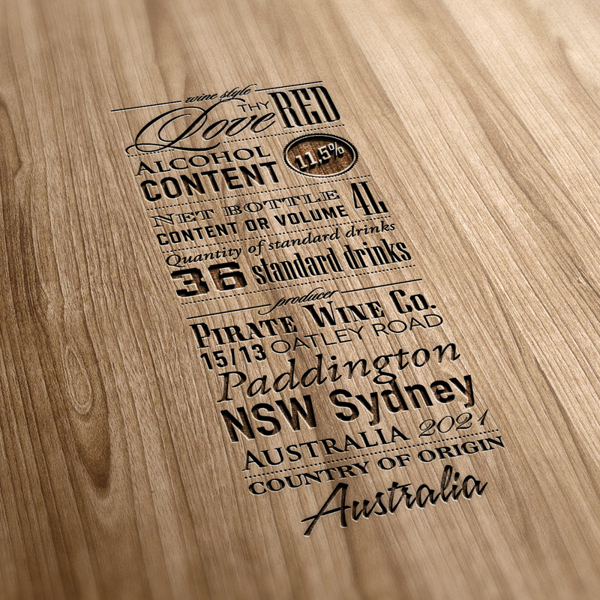 wine style
THY
Love RED
ALCOHOL
CONTENT 11,5%
NET BOTTLE
CONTENT OR VOLUME 4L
Quantity of standard drinks
36 standard drinks
producer
PIRATE WINE CO.
15/13 OATLEY ROAD
Paddington
NSW Sydney
AUSTRALIA 2021
COUNTRY OF ORIGIN
Australia